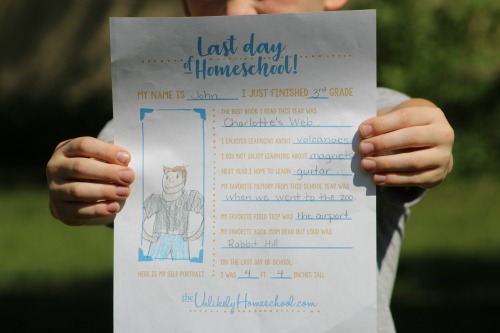 Last day
of Homeschool!
MY NAME IS John I JUST FINISHED 3rd GRADE
THE BEST BOOK I READ THIS YEAR WAS
Charlotte's Web
I ENJOYED LEARNING ABOUT volcanoes
I DID NOT ENJOY LEARNING ABOUT magnets
NEXT YEAR I HOPE TO LEARN guitar
MY FAVORITE MEMORY FROM THIS SCHOOL YEAR WAS
when we went to the zoo
MY FAVORITE FIELD TRIP WAS the airport
MY FAVORITE BOOK MOM READ OUT LOUD WAS
Rabbit Hill
ON THE LAST DAY OF SCHOOL
I WAS 4 FT 4 INCHES TALL
HERE IS MY SELF PORTRAIT
the UnlikelyHomeschool.com